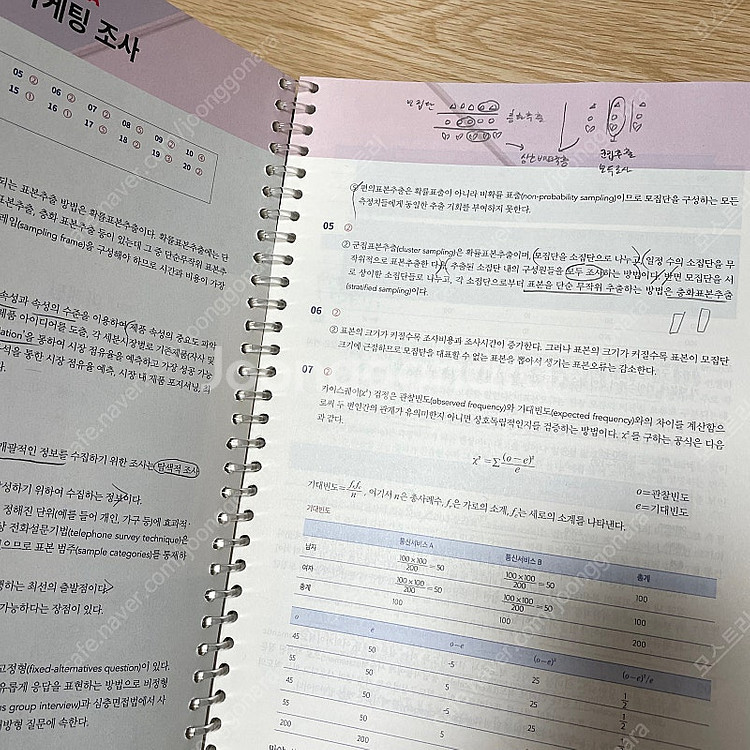 마케팅 조사
05 ② 06 ② 07 ② 08 ③ 09 ② 10 ④
15 ① 16 ① 17 ⑤ 18 ② 19 ③ 20 ②
되는 표본추출 방법은 확률표본추출이다. 확률표본추출에는 단
표본추출, 층화 표본추출 등이 있는데 그 중 단순무작위 표본추
레임(sampling frame)을 구성해야 하므로 시간과 비용이 가장
속성과 속성의 수준을 이용하여 제품 속성의 중요도 파악
제품 아이디어를 도출, 각 세분시장별로 기존제품(자사 및
을 통하여 시장 점유율을 예측하고 가장 성공 가능
석을 통한 시장 점유율 예측, 시장 내 제품 포지셔닝, 최
개괄적인 정보를 수집하기 위한 조사는 탐색적 조사
성하기 위하여 수집하는 정보이다.
정해진 단위(예를 들어 개인, 가구 등)에 효과적·
상 전화설문기법(telephone survey technique)은
으므로 표본 범주(sample categories)를 통제하
행하는 최선의 출발점이다.
가능하다는 장점이 있다.
고정형(fixed-alternatives question)이 있다.
유롭게 응답을 표현하는 방법으로 비정형
s group interview)과 심층면접법에서 사
방형 질문에 속한다.
모집단
층화추출
군집추출
모두조사
⑤ 편의표본추출은 확률표출이 아니라 비확률 표출(non-probability sampling)이므로 모집단을 구성하는 모든
측정치들에게 동일한 추출 기회를 부여하지 못한다.
05 ②
② 군집표본추출(cluster sampling)은 확률표본추출이며, 모집단을 소집단으로 나누고, 일정 수의 소집단을 무
작위적으로 표본추출한 다음, 추출된 소집단 내의 구성원들을 모두 조사하는 방법이다. 반면 모집단을 서
로 상이한 소집단들로 나누고, 각 소집단으로부터 표본을 단순 무작위 추출하는 방법은 층화표본추출
(stratified sampling)이다.
06 ②
② 표본의 크기가 커질수록 조사비용과 조사시간이 증가한다. 그러나 표본의 크기가 커질수록 표본이 모집단
크기에 근접하므로 모집단을 대표할 수 없는 표본을 뽑아서 생기는 표본오류는 감소한다.
07 ②
카이스퀘어(χ²) 검정은 관찰빈도(observed frequency)와 기대빈도(expected frequency)와의 차이를 계산함으
로써 두 변인간의 관계가 유의미한지 아니면 상호독립적인지를 검증하는 방법이다. χ²를 구하는 공식은 다음
과 같다.
χ² = Σ (o-e)²/e
o=관찰빈도
e=기대빈도
기대빈도= , 여기서 n은 총사례수, 은 가로의 소계, 는 세로의 소계를 나타낸다.
기대빈도
통신서비스 A 통신서비스 B 총계
남자 100×100/200 = 50 100×100/200 = 50 100
여자 100×100/200 = 50 100×100/200 = 50 100
총계 100 100 200
o e o-e (o-e)² (o-e)²/e
45 50 -5 25 1/2
55 50 5 25 1/2
55 50 -5 25 1/2
45 50 5 25
200 200